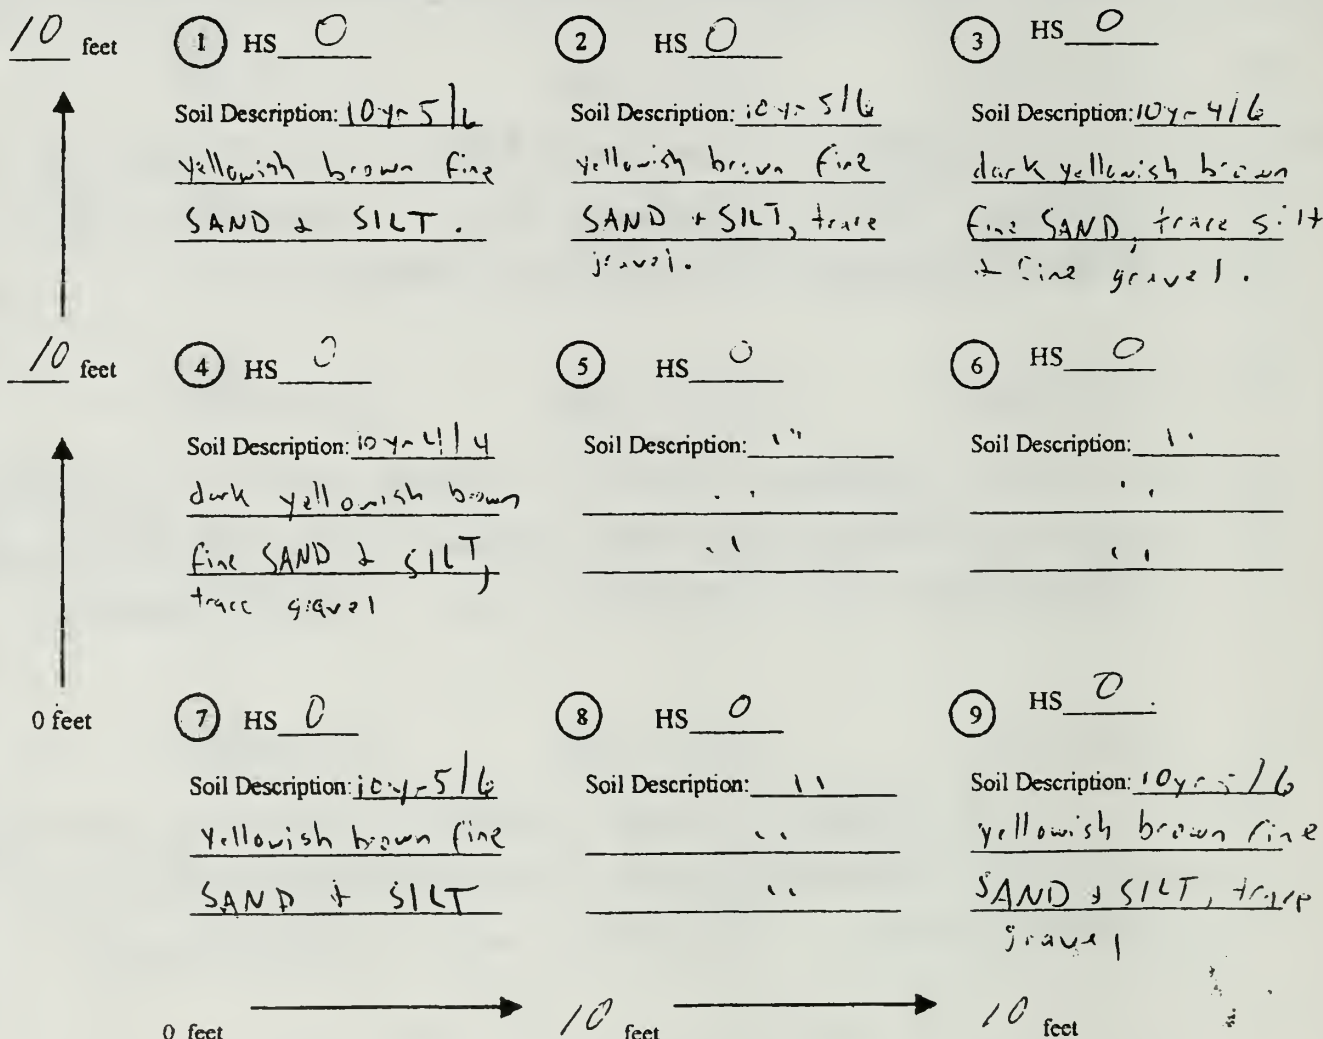 10 feet
① HS 0
② HS 0
③ HS 0
Soil Description: 10yr 5/6
yellowish brown fine
SAND & SILT.
Soil Description: 10yr 5/6
yellowish brown fine
SAND + SILT, trace
gravel.
Soil Description: 10yr 4/6
dark yellowish brown
fine SAND, trace silt
+ fine gravel.
10 feet
④ HS 0
⑤ HS 0
⑥ HS 0
Soil Description: 10yr 4/4
dark yellowish brown
fine SAND & SILT,
trace gravel
Soil Description: ''
''
''
Soil Description: ''
''
''
0 feet
⑦ HS 0
⑧ HS 0
⑨ HS 0
Soil Description: 10yr 5/6
yellowish brown fine
SAND + SILT
Soil Description: ''
''
''
Soil Description: 10yr 5/6
yellowish brown fine
SAND & SILT, trace
gravel
0 feet
10 feet
10 feet